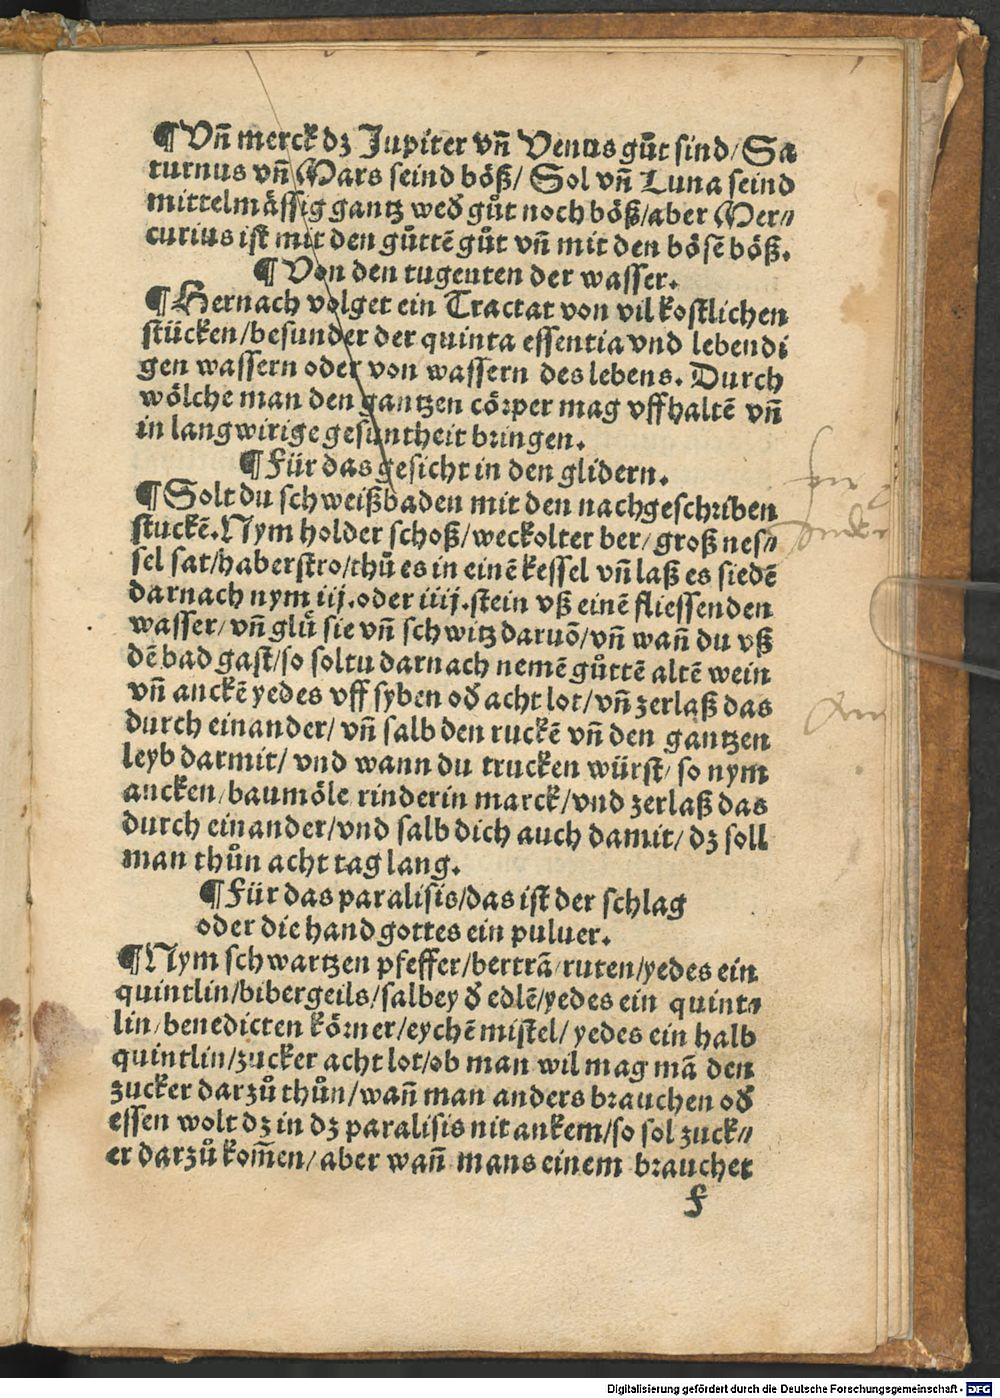 ¶Vñ merck dz Jupiter vñ Venus gůt sind/Sa
turnus vñ Mars seind böß/ Sol vñ Luna seind
mittelmässig gantz wed̕ gůt noch böß/aber Mer⸗
curius ist mit den gůttē gůt vñ mit den bösē böß.
¶Von den tugenten der wasser.
¶Hernach volget ein Tractat von vil kostlichen
stücken/besunder der quinta essentia vnd lebendi
gen wassern oder von wassern des lebens. Durch
wölche man den gantzen cörper mag vffhaltē vñ
in langwirige gesuntheit bringen.
¶Für das gesicht in den glidern.
¶Solt du schweißbaden mit den nachgeschriben
stuckē.Nym holder schoß/weckolter ber/groß nes⸗
sel sat/haberstro/thů es in einē kessel vñ laß es siedē
darnach nym iij.oder iiij.stein vß einē fliessenden
wasser/vñ glů sie vñ schwitz daruō/vñ wañ du vß
dē bad gast/so soltu darnach nemē gůttē altē wein
vñ anckē yedes vff syben od̕ acht lot/vñ zerlaß das
durch einander/vñ salb den ruckē vñ den gantzen
leyb darmit/ vnd wann du trucken würst/so nym
ancken/baumöle rinderin marck/vnd zerlaß das
durch einander/vnd salb dich auch damit/ dz soll
man thůn acht tag lang.
¶Für das paralisis/das ist der schlag
oder die hand gottes ein puluer.
¶Nym schwartzen pfeffer/bertrā/ruten/yedes ein
quintlin/bibergeils/salbey d̕ edlē/yedes ein quint⸗
lin/benedicten körner/eychē mistel/ yedes ein halb
quintlin/zucker acht lot/ob man wil mag mā den
zucker darzů thůn/wañ man anders brauchen od̕
essen wolt dz in dz paralisis nit ankem/so sol zuck⸗
er darzů kom̄en/aber wañ mans einem brauchet
f
Digitalisierung gefördert durch die Deutsche Forschungsgemeinschaft - DFG